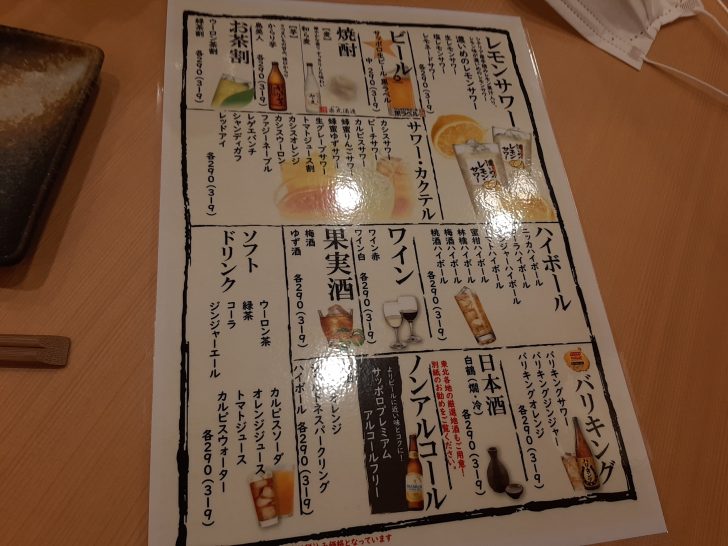 レモンサワー
濃いめのレモンサワー
生レモンサワー
塩レモンサワー
レモネードサワー
各290(319)
ビール
サッポロ生ビール黒ラベル
中 290(319)
焼酎
【麦】
和ら麦
【芋】
からり芋
黒美人
各290(319)
お茶割
ウーロン茶割
緑茶割
各290(319)
サワー・カクテル
カシスサワー
ピーチサワー
カルピスサワー
蜂蜜りんごサワー
蜂蜜ゆずサワー
生グレープサワー
トマトジュース割
カシスオレンジ
カシスウーロン
ファジーネーブル
レゲエパンチ
シャンディガフ
レッドアイ
各290(319)
ハイボール
ニッカハイボール
コーラハイボール
ジンジャーハイボール
蜜柑ハイボール
林檎ハイボール
梅酒ハイボール
桃酒ハイボール
各290(319)
ワイン
ワイン赤
ワイン白
各290(319)
果実酒
梅酒
ゆず酒
各290(319)
ソフトドリンク
ウーロン茶
緑茶
コーラ
ジンジャーエール
カルピスソーダ
オレンジジュース
トマトジュース
カルピスウォーター
各290(319)
バリキング
バリキングサワー
バリキングジンジャー
バリキングオレンジ
各290(319)
日本酒
白鶴(燗・冷)
各290(319)
東北各地の厳選地酒もご用意!
別紙のお勧めをご覧ください。
ノンアルコール
よりビールに近い味とコクに!
サッポロプレミアム
アルコールフリー
オレンジ
ドネスパークリング
ハイボール
各290(319)
込み価格となっています